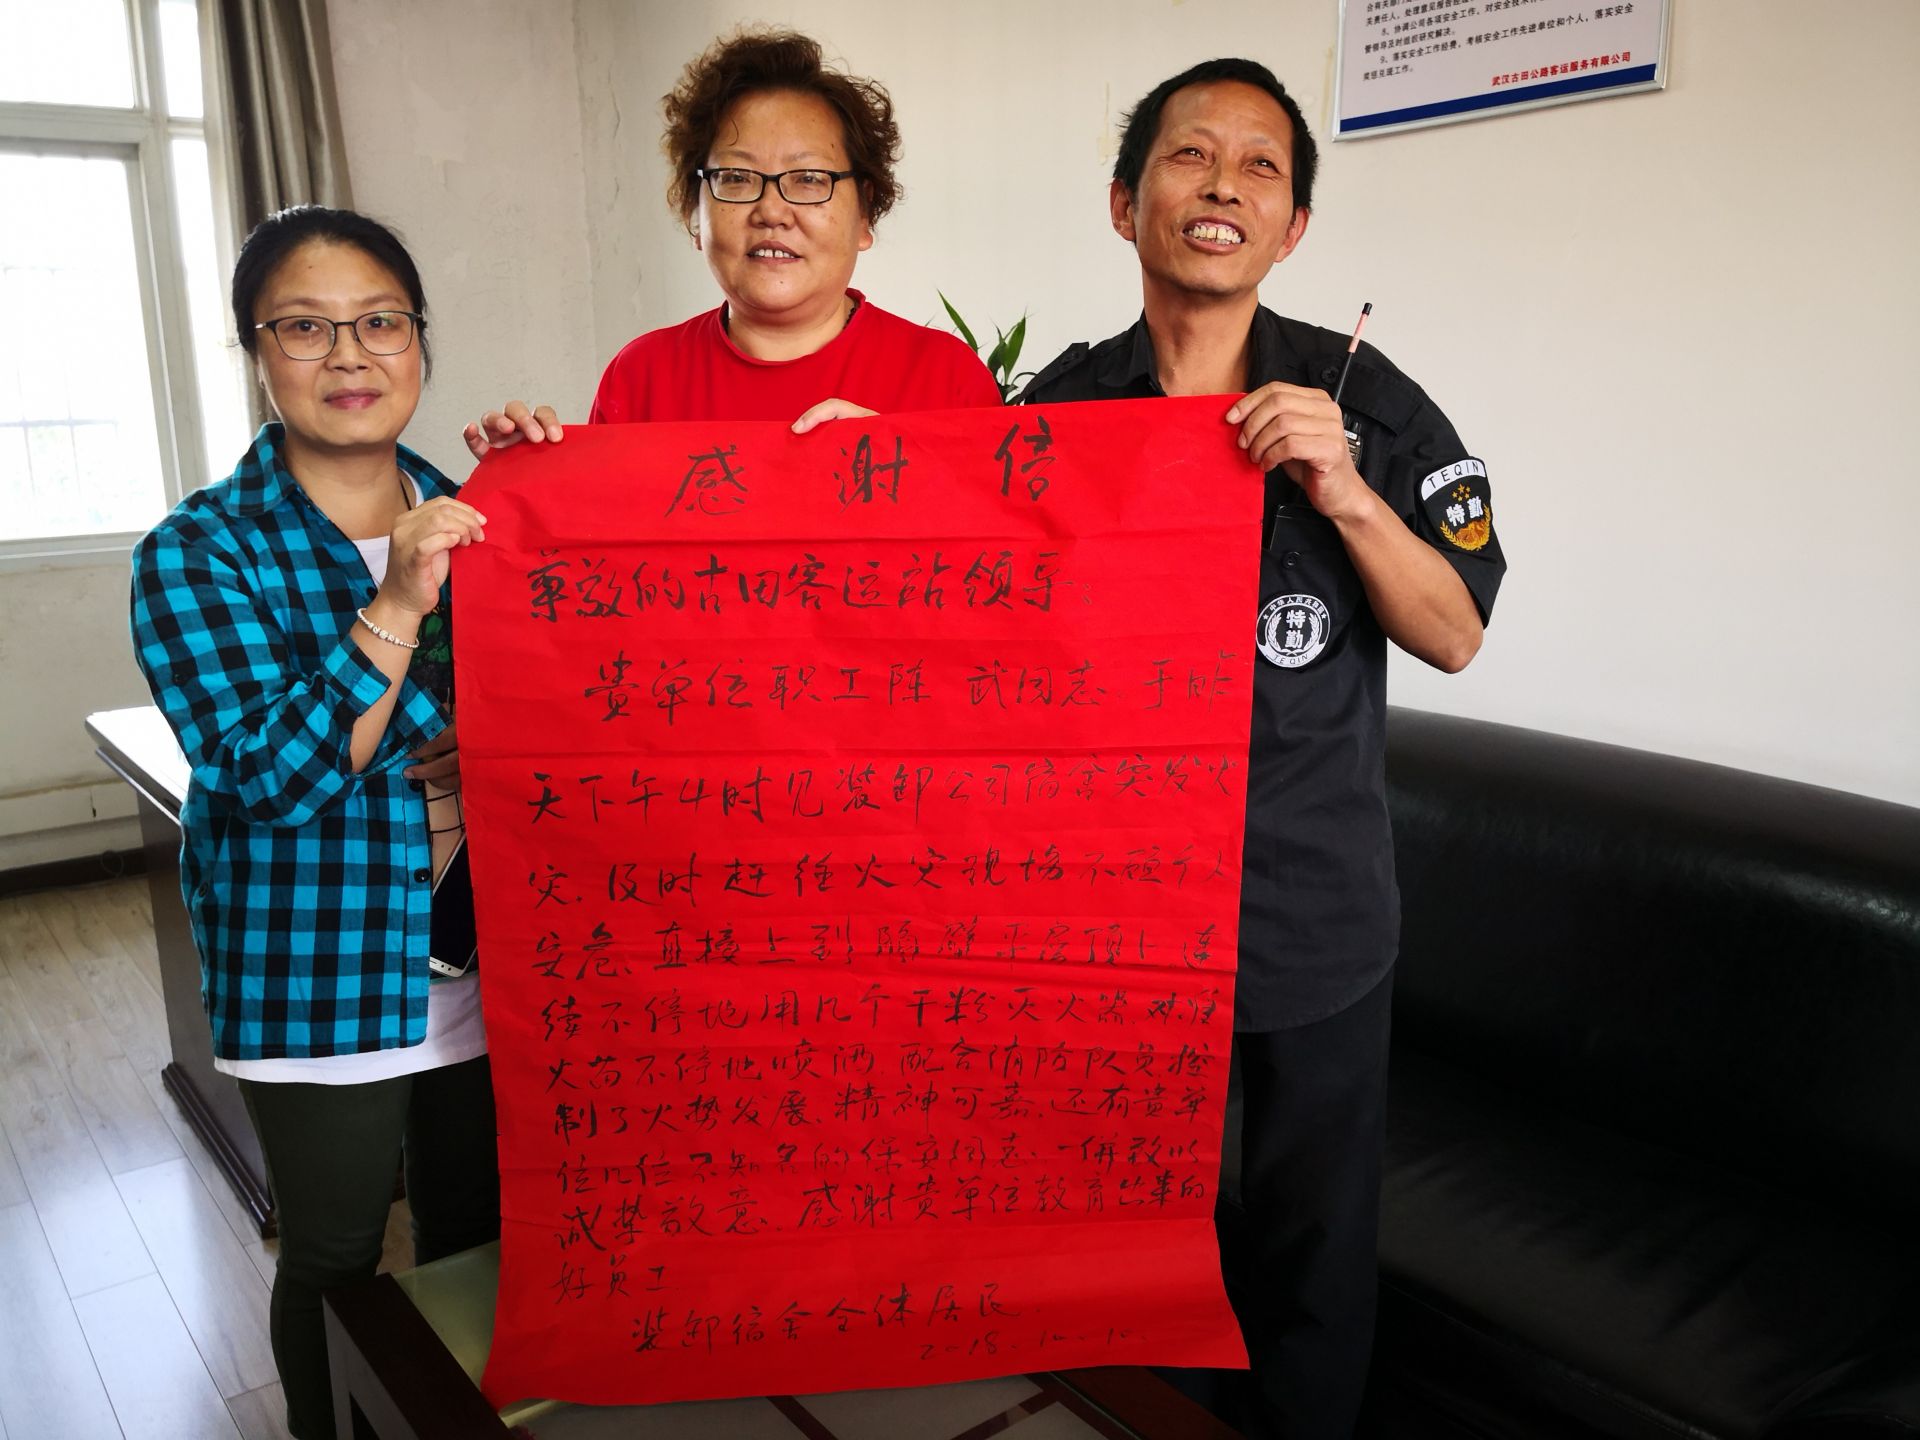 关责任人,处理意见报告经
8、协调公司各项安全工作、对安全技术
管领导及时组织研究解决。
9、落实安全工作经费,考核安全工作先进单位和个人,落实安全
奖惩兑现工作。
武汉古田公路客运服务有限公司
TEQIN
特勤
中华人民共和国
特勤
TEQIN
感谢信
尊敬的古田客运站领导:
贵单位职工陈 武同志、于昨
天下午4时见装卸公司宿舍突发火
灾.及时赶往火灾现场不顾个人
安危、直接上到隔壁平房顶上连
续不停地用几个干粉灭火器.对准
火苗不停地喷洒.配合消防队员控
制了火势发展、精神可嘉.还有贵单
位几位不知名的保安同志、一併致以
诚挚敬意、感谢贵单位教育出来的
好员工.
装卸宿舍全体居民.
2018.10.10.